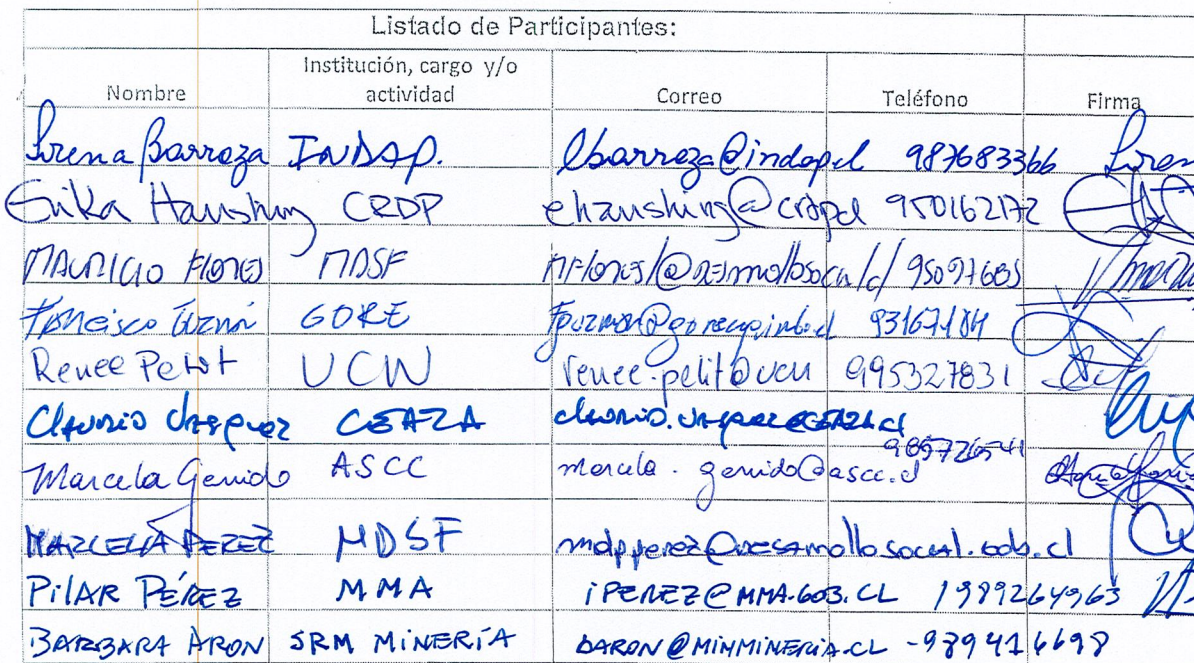 Listado de Participantes:
Nombre Institución, cargo y/o actividad Correo Teléfono Firma
Lorena Barraza INDAP. lbarraza@indap.cl 987683366 Loren
Erika Hanshing CRDP ehanshing@crdp.cl 950162172
MAURICIO FLORES MDSF 95097685
Francisco Guzmán GORE 93167184
Renee Petit UCN renee.petit@ucn 995327831
Claudio Vasquez CEAZA claudio.vasquez@CEAZA.cl 985726541
Marcela Garrido ASCC marcela.garrido@ascc.cl
MARCELA PEREZ MDSF mdpperez@desarrollosocial.gob.cl
PILAR PÉREZ MMA iPEREZ@MMA.GOB.CL 1989264963
BARBARA ARON SRM MINERÍA BARON@MINMINERIA.CL -989416698